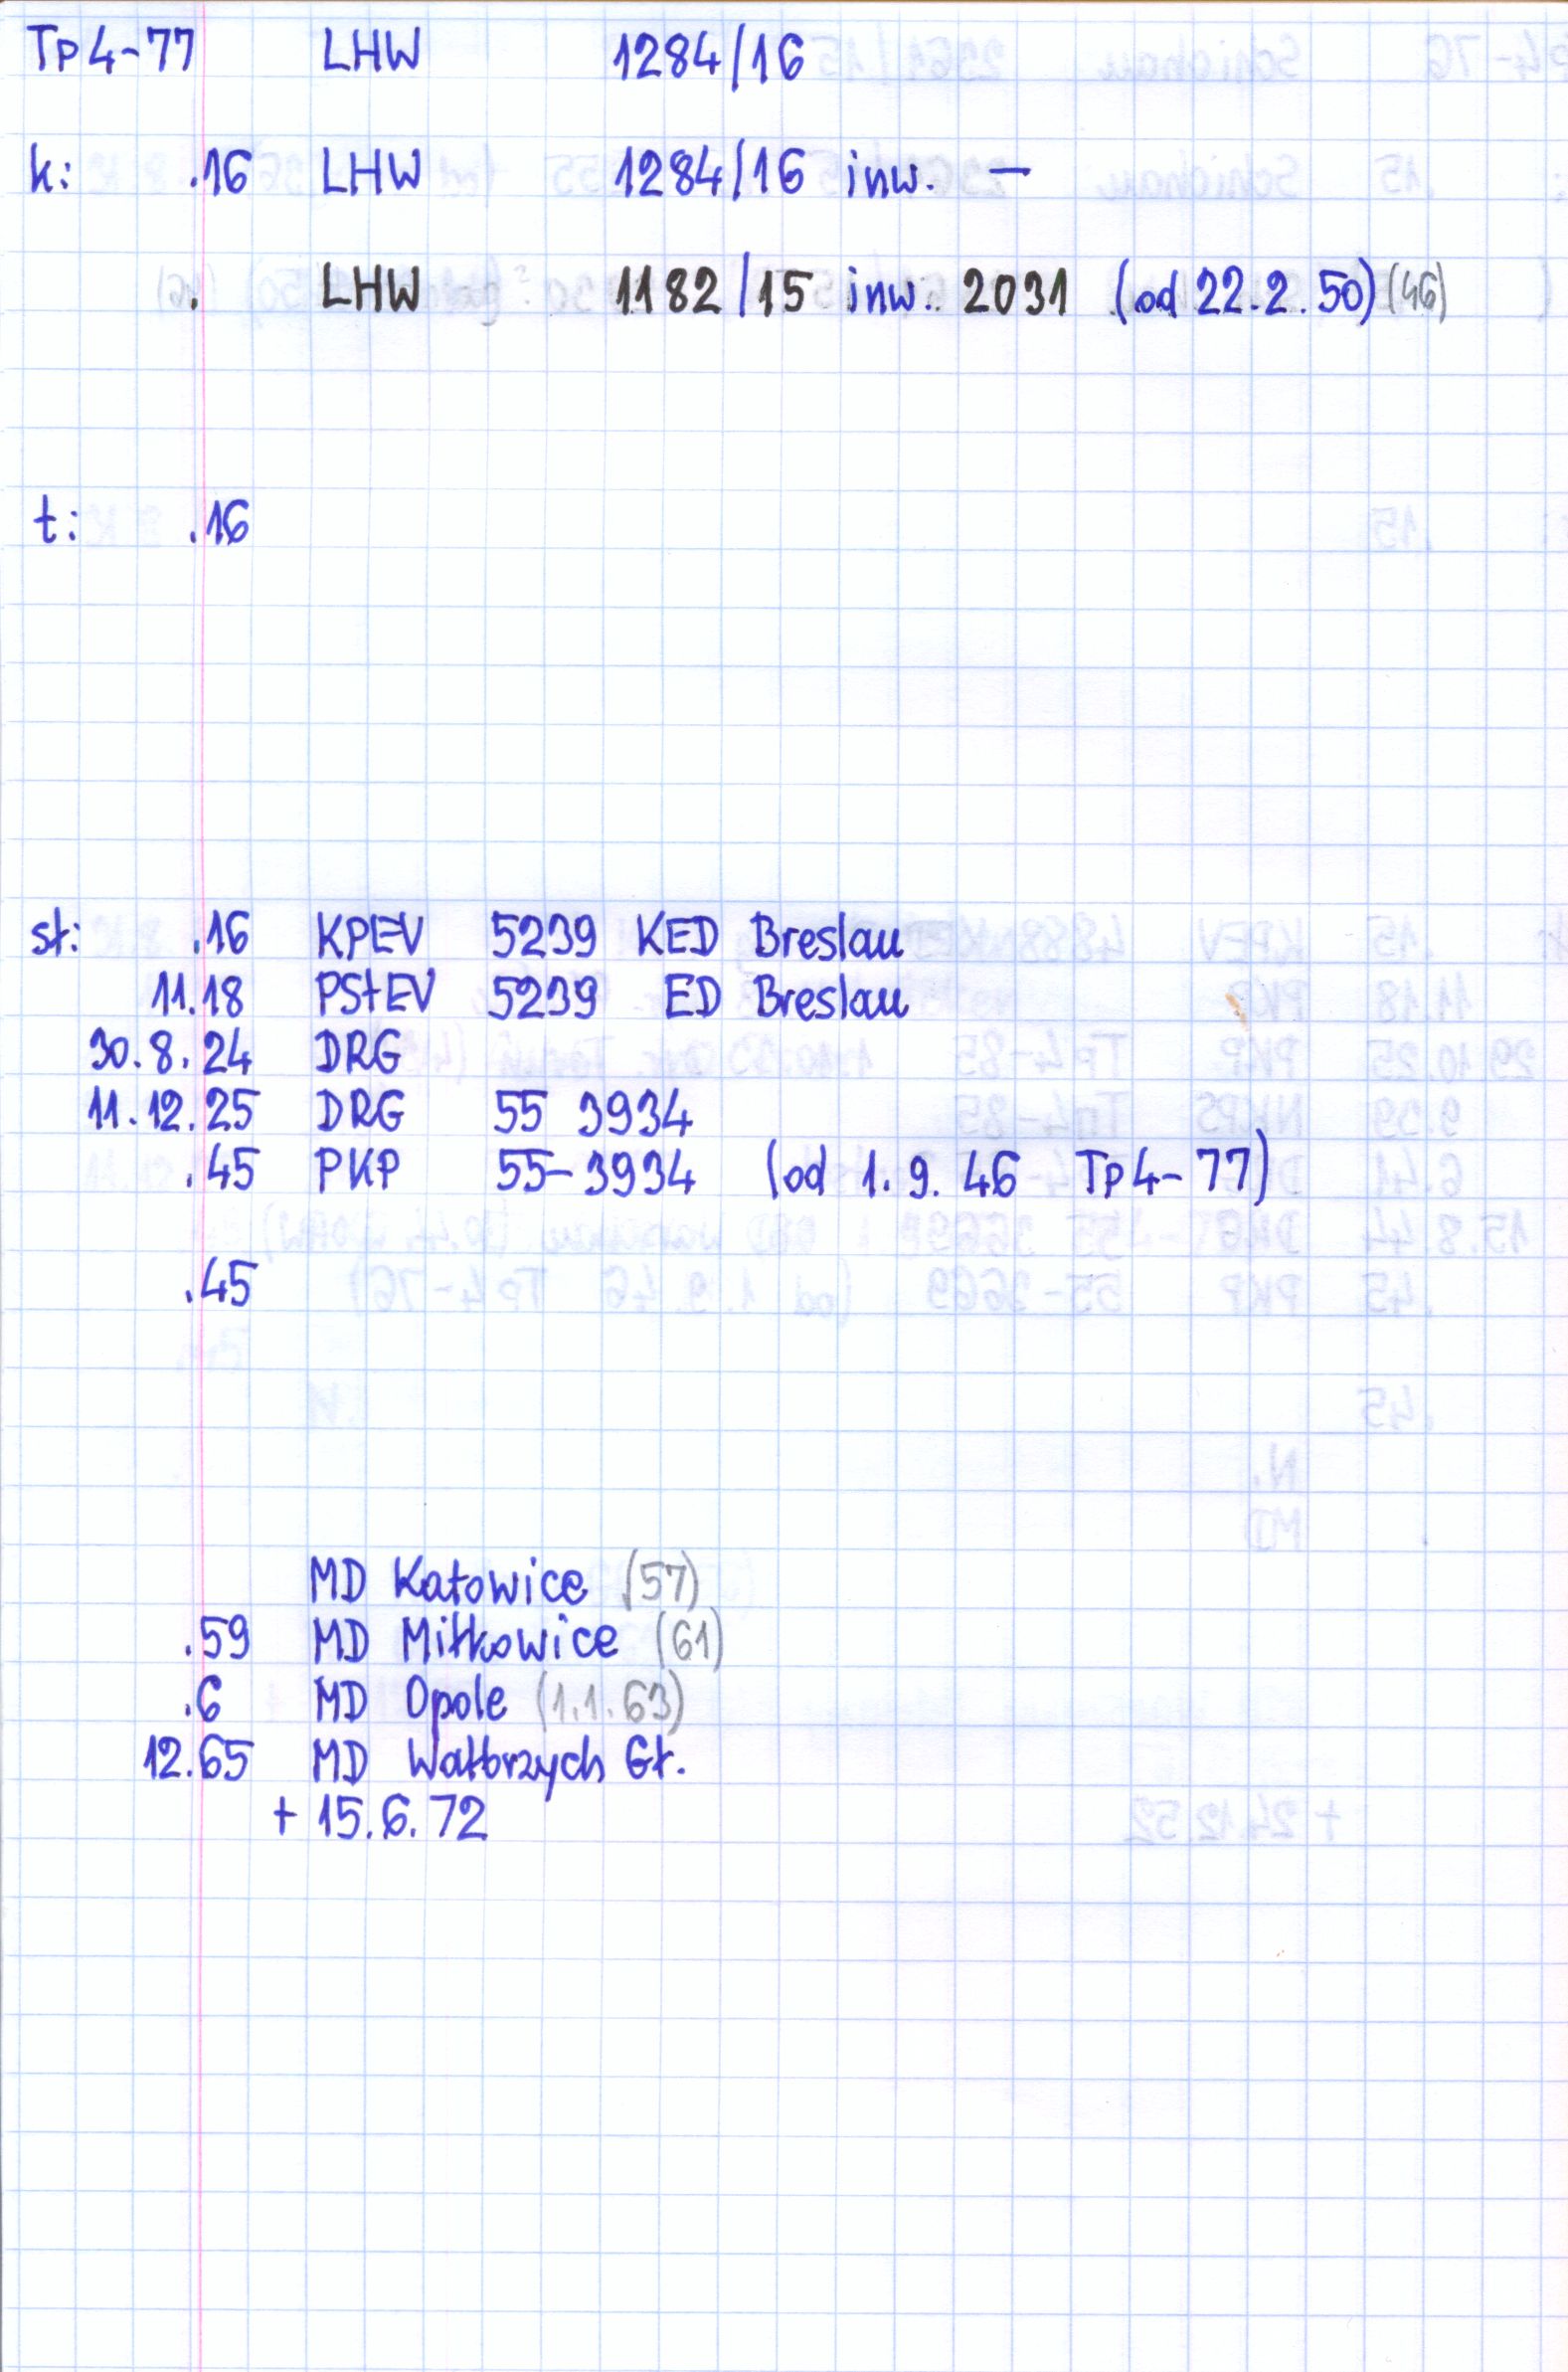 Tp4-77 LHW 1284/16
k: .16 LHW 1284/16 inw. —
. LHW 1182/15 inw. 2031 (od 22.2.50) (46)
t: .16
st: .16 KPEV 5239 KED Breslau
11.18 PStEV 5239 ED Breslau
30.8.24 DRG
11.12.25 DRG 55 3934
.45 PKP 55-3934 (od 1.9.46 Tp4-77)
.45
MD Katowice (57)
.59 MD Miłkowice (61)
.6 MD Opole (1.1.63)
12.65 MD Wałbrzych Gł.
+ 15.6.72